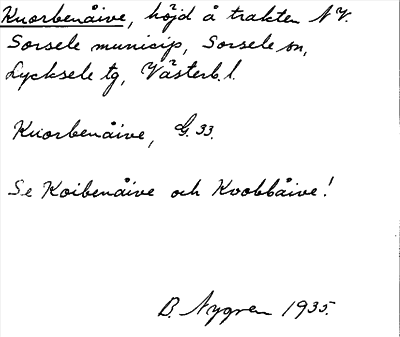 Kuorbenåive, höjd å trakten N V.
Sorsele municip, Sorsele sn,
Lycksele tg, Västerb. l.
Kuorbenåive, G. 33.
Se Koibenåive och Kvobbåive!
B. Nygren 1935.